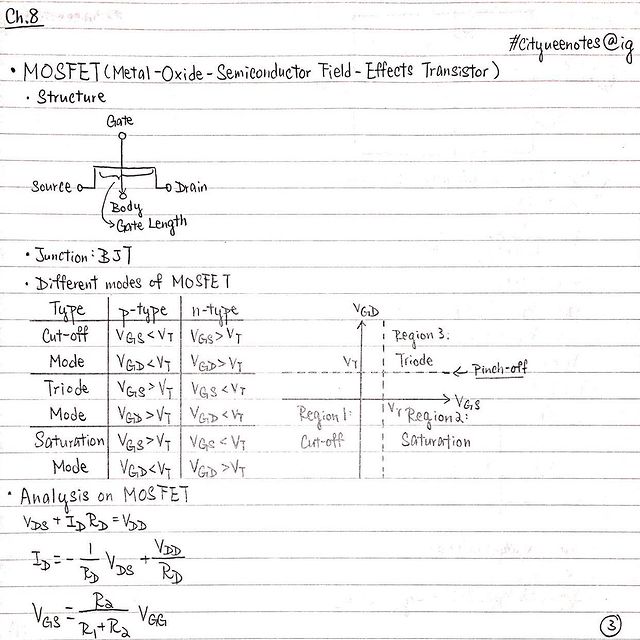 Ch.8
#Cityueenotes@ig
• MOSFET (Metal-Oxide-Semiconductor Field-Effects Transistor)
• Structure
Gate
Source
Drain
Body
Gate Length
• Junction: BJT
• Different modes of MOSFET
Type p-type n-type
Cut-off V_GS < V_T V_GS > V_T
Mode V_GD < V_T V_GD > V_T
Triode V_GS > V_T V_GS < V_T
Mode V_GD > V_T V_GD < V_T
Saturation V_GS > V_T V_GS < V_T
Mode V_GD < V_T V_GD > V_T
V_GD
Region 3:
V_T Triode
Pinch-off
V_GS
V_T
Region 1: Region 2:
Cut-off Saturation
• Analysis on MOSFET
V_DS + I_D R_D = V_DD
I_D = - 1/R_D V_DS + V_DD/R_D
V_GS = R_2/(R_1+R_2) V_GG
3